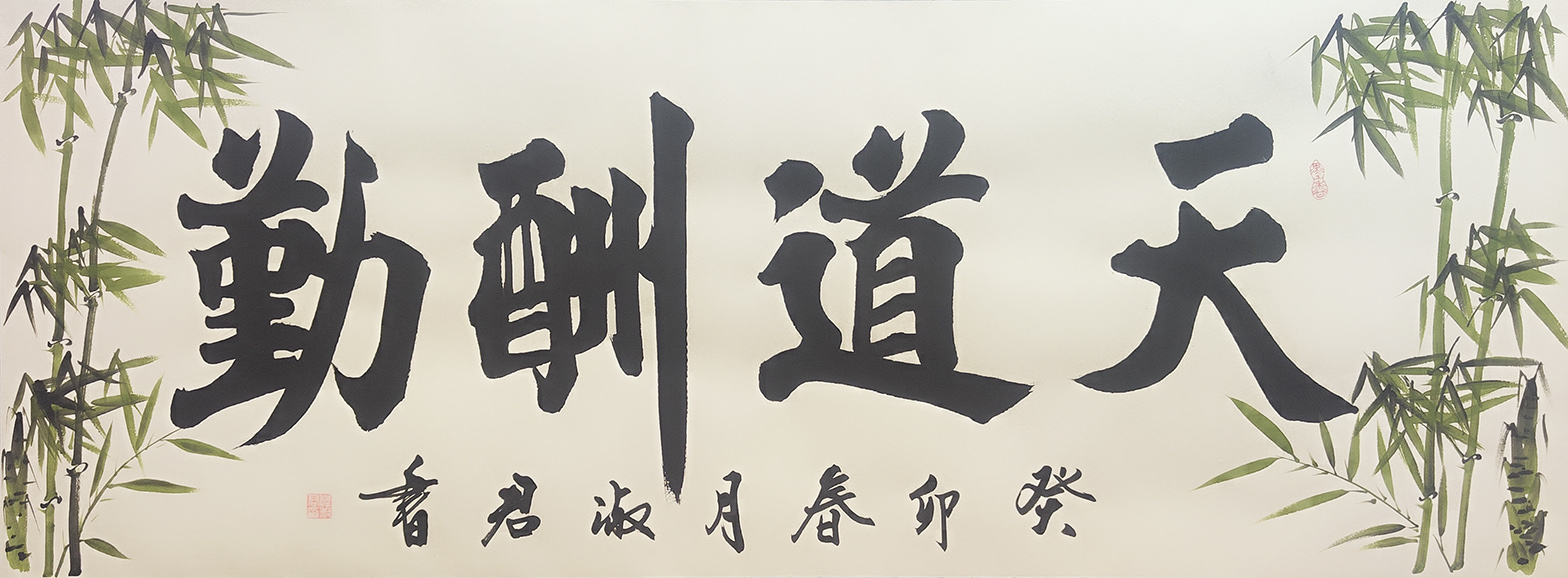 天道酬勤
癸卯春月淑君書